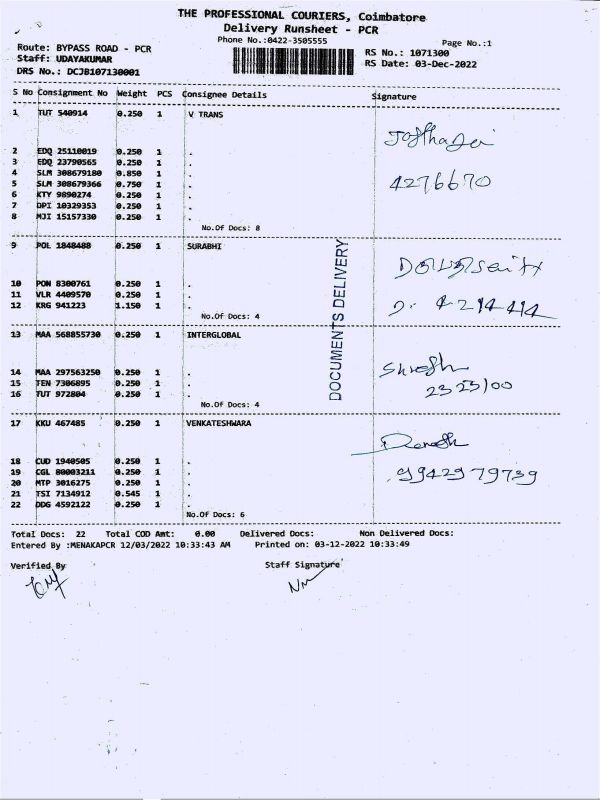 THE PROFESSIONAL COURIERS, Coimbatore
Delivery Runsheet - PCR
Phone No.:0422-3505555
Page No.:1
Route: BYPASS ROAD - PCR
RS No.: 1071300
Staff: UDAYAKUMAR
RS Date: 03-Dec-2022
DRS No.: DCJB107130001
S No Consignment No Weight PCS Consignee Details Signature
1 TUT 540914 0.250 1 V TRANS
2 EDQ 25110019 0.250 1 .
3 EDQ 23790565 0.250 1 .
4 SLM 308679180 0.850 1 .
4276670
5 SLM 308679366 0.750 1 .
6 KTY 9890274 0.250 1 .
7 DPI 10329353 0.250 1 .
8 MJI 15157330 0.250 1 .
No.Of Docs: 8
9 POL 1848488 0.250 1 SURABHI
10 PON 8300761 0.250 1 .
11 VLR 4409570 0.250 1 .
12 KRG 941223 1.150 1 .
No.Of Docs: 4
DOCUMENTS DELIVERY
13 MAA 568855730 0.250 1 INTERGLOBAL
14 MAA 297563250 0.250 1 .
15 TEN 7306895 0.250 1 .
16 TUT 972804 0.250 1 .
No.Of Docs: 4
17 KKU 467485 0.250 1 VENKATESHWARA
18 CUD 1940505 0.250 1 .
19 CGL 80003211 0.250 1 .
9942979739
20 MTP 3016275 0.250 1 .
21 TSI 7134912 0.545 1 .
22 DDG 4592122 0.250 1 .
No.Of Docs: 6
Total Docs: 22 Total COD Amt: 0.00 Delivered Docs: Non Delivered Docs:
Entered By :MENAKAPCR 12/03/2022 10:33:43 AM Printed on: 03-12-2022 10:33:49
Verified By Staff Signature